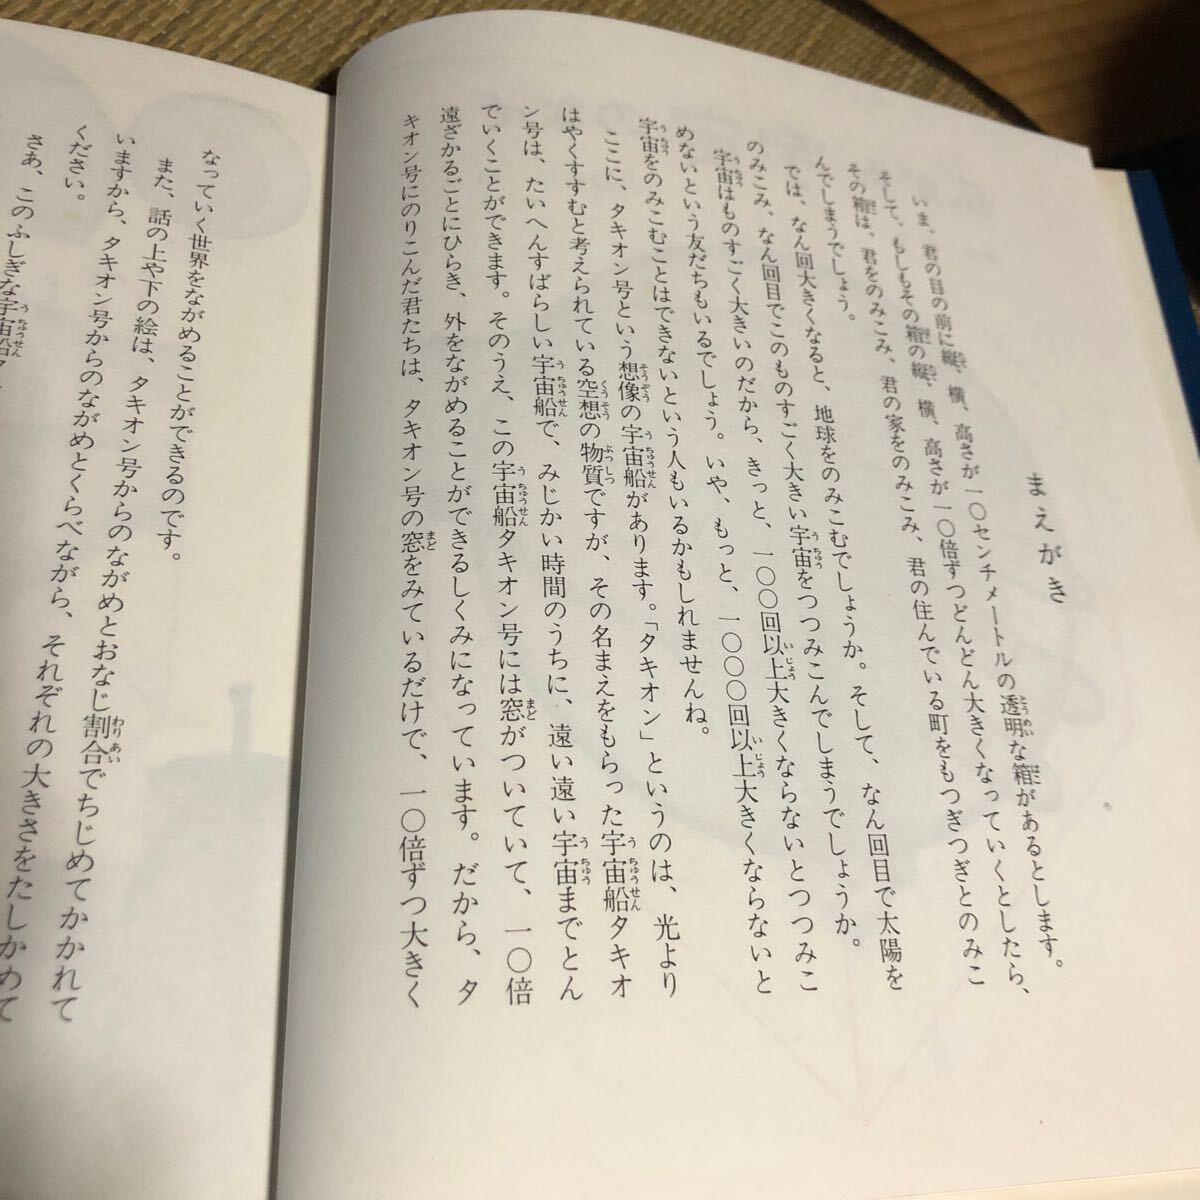 まえがき
いま、君の目の前に縦、横、高さが一〇センチメートルの透明な箱があるとします。
そして、もしもその箱の縦、横、高さが一〇倍ずつどんどん大きくなっていくとしたら、
その箱は、君をのみこみ、君の家をのみこみ、君の住んでいる町をもつぎつぎとのみこ
んでしまうでしょう。
では、なん回大きくなると、地球をのみこむでしょうか。そして、なん回目で太陽を
のみこみ、なん回目でこのものすごく大きい宇宙をつつみこんでしまうでしょうか。
宇宙はものすごく大きいのだから、きっと、一〇〇回以上大きくならないとつつみこ
めないという友だちもいるでしょう。いや、もっと、一〇〇〇回以上大きくならないと
宇宙をのみこむことはできないという人もいるかもしれませんね。
ここに、タキオン号という想像の宇宙船があります。「タキオン」というのは、光より
はやくすすむと考えられている空想の物質ですが、その名まえをもらった宇宙船タキオ
ン号は、たいへんすばらしい宇宙船で、みじかい時間のうちに、遠い遠い宇宙までとん
でいくことができます。そのうえ、この宇宙船タキオン号には窓がついていて、一〇倍
遠ざかるごとにひらき、外をながめることができるしくみになっています。だから、タ
キオン号にのりこんだ君たちは、タキオン号の窓をみているだけで、一〇倍ずつ大きく
なっていく世界をながめることができるのです。
また、話の上や下の絵は、タキオン号からのながめとおなじ割合でちじめてかかれて
いますから、タキオン号からのながめとくらべながら、それぞれの大きさをたしかめて
ください。
さあ、このふしぎな宇宙船